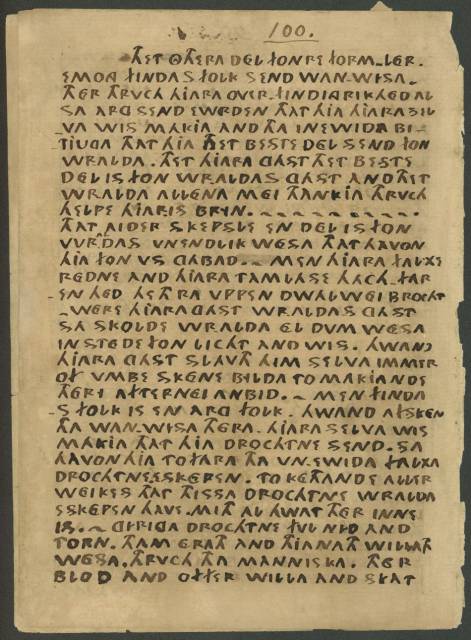 100.
THET OTHERA DEL FON RE FORM-LER.
EMODA FINDAS FOLK SEND WAN-WISA.
THER THRUCH HIARA OVER-FINDIGRIKHED AL
SA ARG SEND EWRDEN THAT HIA HIARA SEL
VA WIS MAKIA AND THA INEWIDA BI-
TIUGA THAT HIA THET BESTE DEL SEND FON
WRALDA. THET HIARA GAST THET BESTE
DEL IS FON WRALDAS GAST AND THET
WRALDA ALLENA MEI THANKIA THRUCH
HELPE HIARIS BRYN.
THAT AIDER SKEPSLE EN DEL IS FON
WR.DAS VNENDLIK WESA THAT HAVON
HIA FON VS GABAD. - MEN HIARA FALXE
REDNE AND HIARA TAMLASE HACH-FAR
-EN HED HETH RA VPPEN DWALWEI BROCHT
-WERE HIARA GAST WRALDAS GAST
SA SKOLDE WRALDA EL DVM WESA
IN STEDE FON LICHT AND WIS. HWAND
HIARA GAST SLAVTH HIM SELVA IMMER
OF VMBE SKENE BILDA TO MAKIANDE
THER I AFTERNEI ANBID. - MEN FINDA
-S FOLK IS EN ARG FOLK. HWAND AFSKEN
THA WAN-WISA THERA. HIARA SELVA WIS
MAKIA THAT HIA DROCHTNE SEND. SA
HAVON HIA TO FARA THA VN.EWIDA FALXA
DROCHTNE ESKEPEN. TO KETHANDE ALLER
WEIKES THAT THISSA DROCHTNE WRALDA
ESKEPEN HAVE. MITH AL HWAT THER INNE
IS. - GIRIGA DROCHTNE FVL NID AND
TORN. THAM ERATH AND THIANATH WILLATH
WESA. THRUCH THA MANNISKA. THER
BLOD AND OFFER WILLA AND SKAT